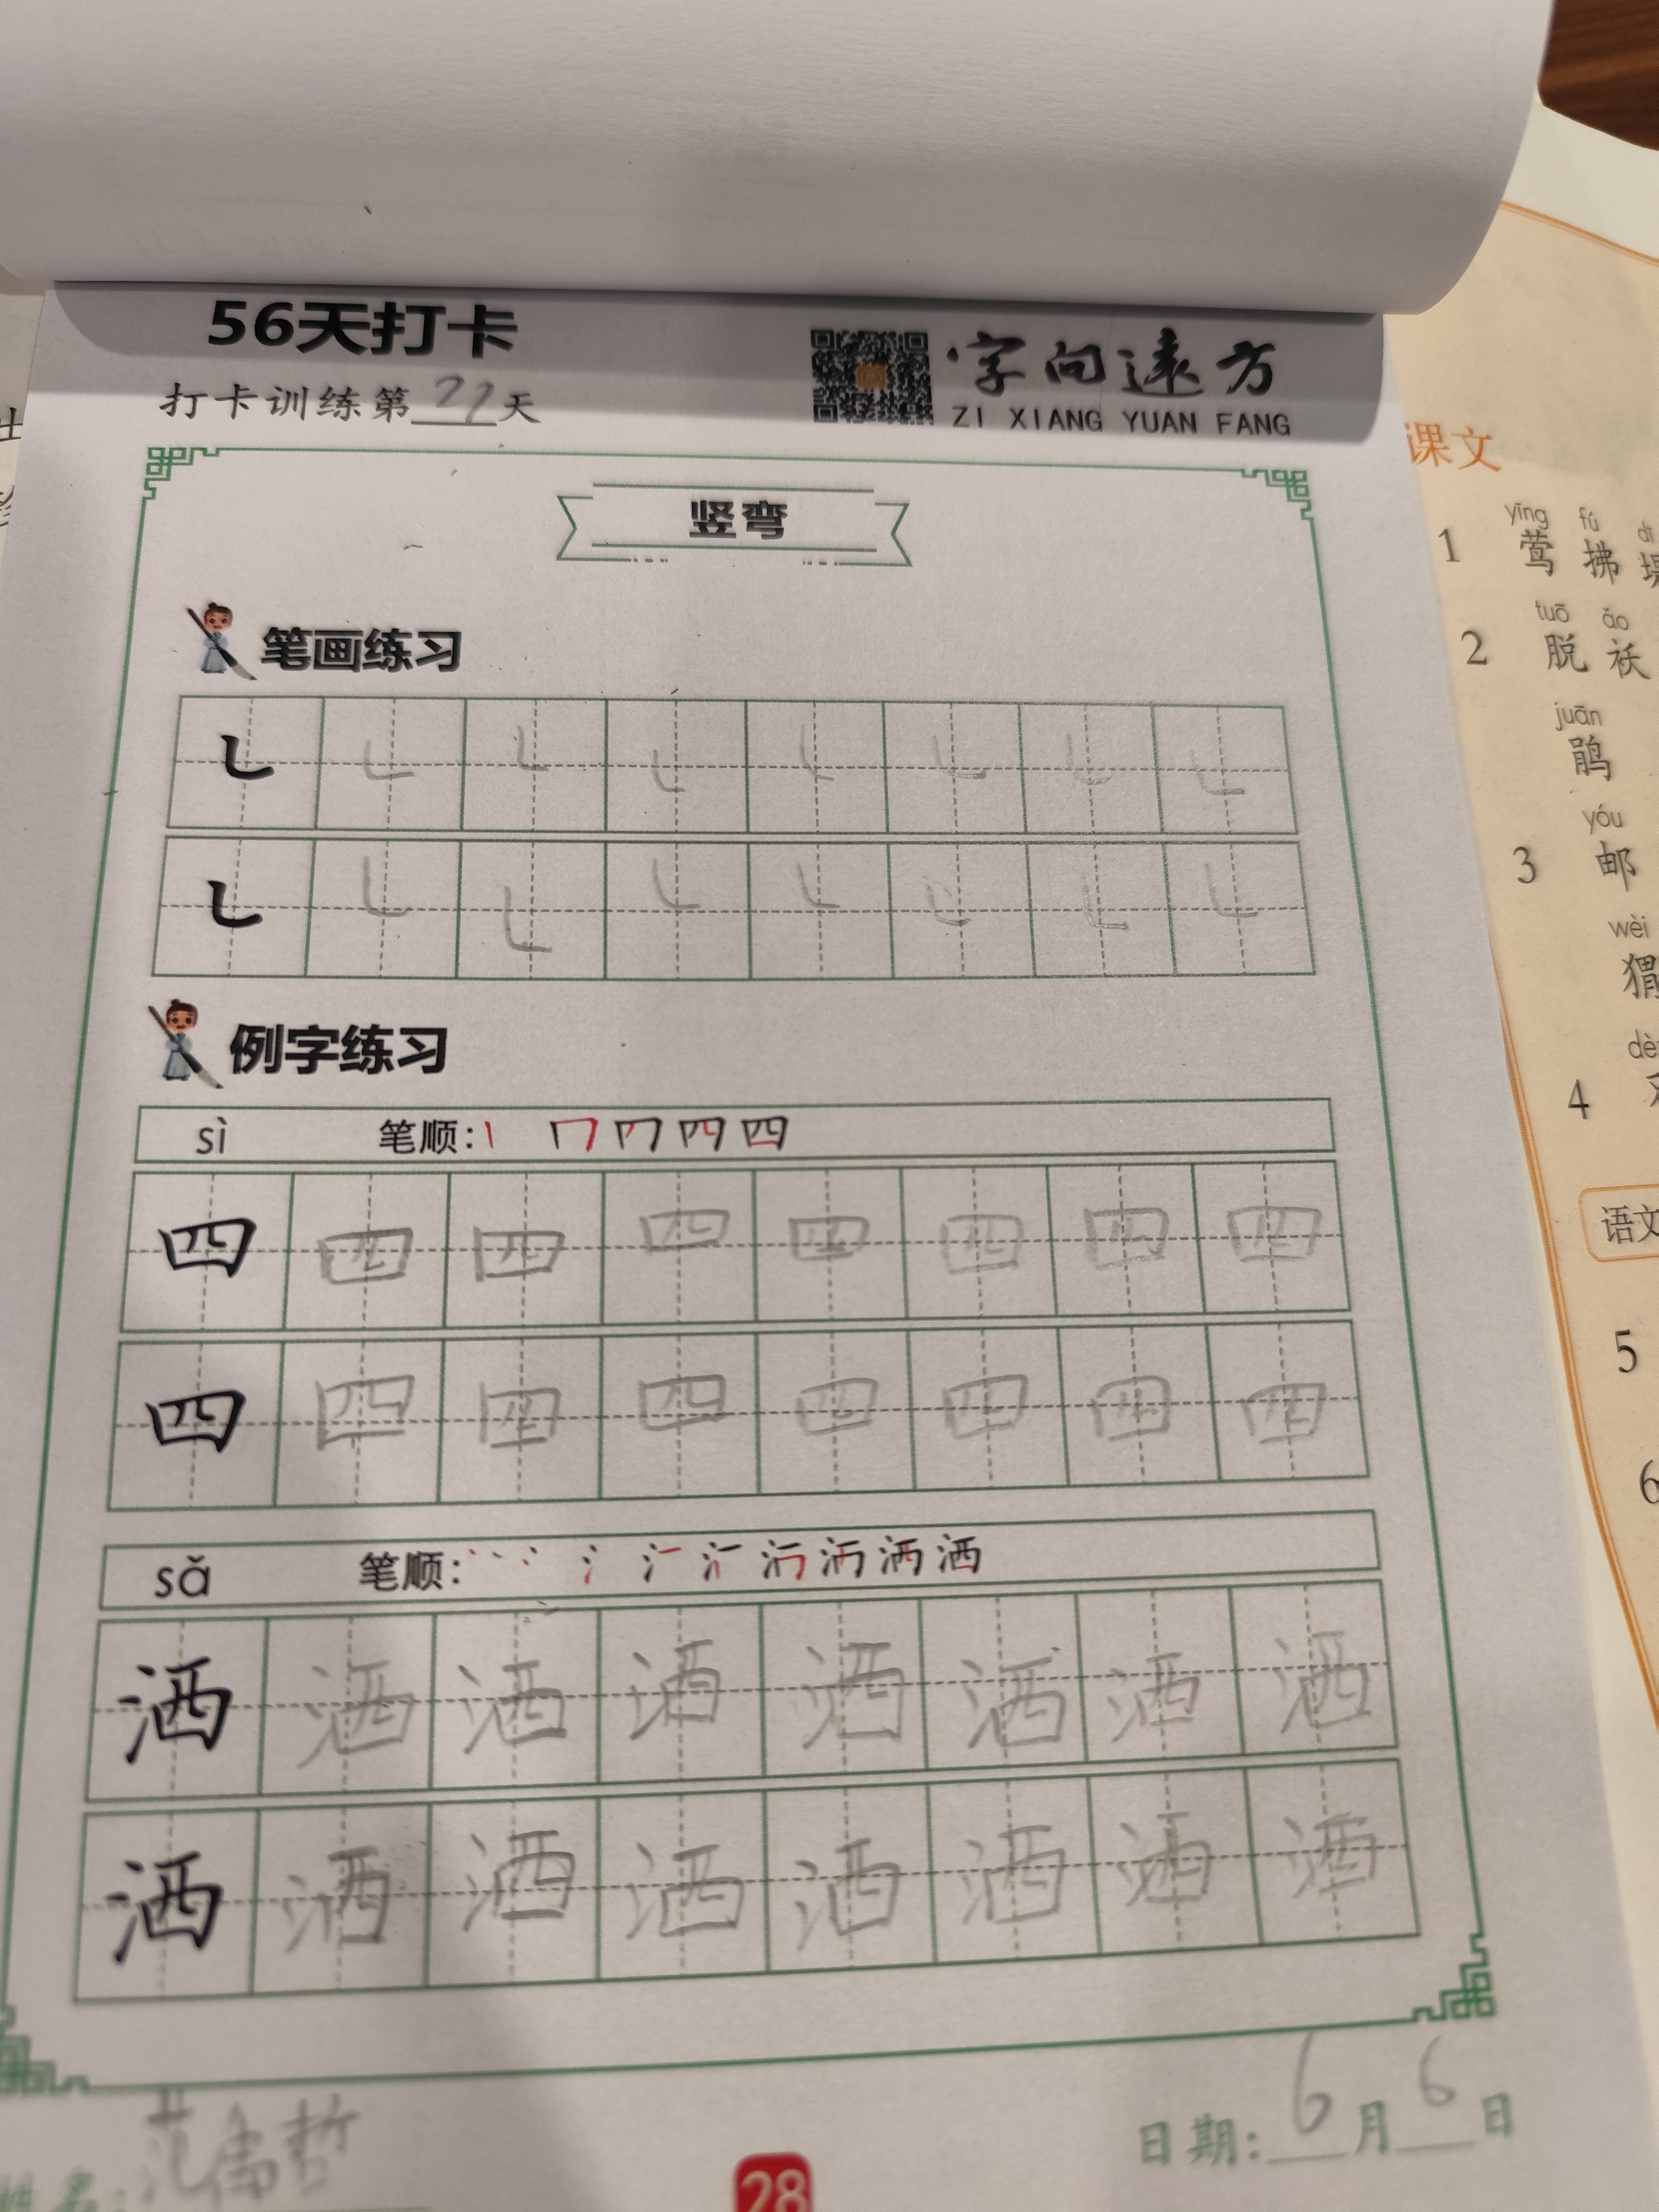 56天打卡
打卡训练第 27 天
字向远方
ZI XIANG YUAN FANG
竖弯
笔画练习
㇄ ㇄ ㇄ ㇄ ㇄ ㇄ ㇄ ㇄
㇄ ㇄ ㇄ ㇄ ㇄ ㇄ ㇄ ㇄
例字练习
sì 笔顺: 四
四 四 四 四 四 四 四 四
四 四 四 四 四 四 四 四
sǎ 笔顺: 洒
洒 洒 洒 洒 洒 洒 洒 洒
洒 洒 洒 洒 洒 洒 洒 洒
姓名:
日期: 6 月 6 日
28
课文
yīng fú
1 莺 拂 堤
tuō ǎo
2 脱 袄
juān
鹃
yóu
3 邮
wèi
猬
4
语文
5
6